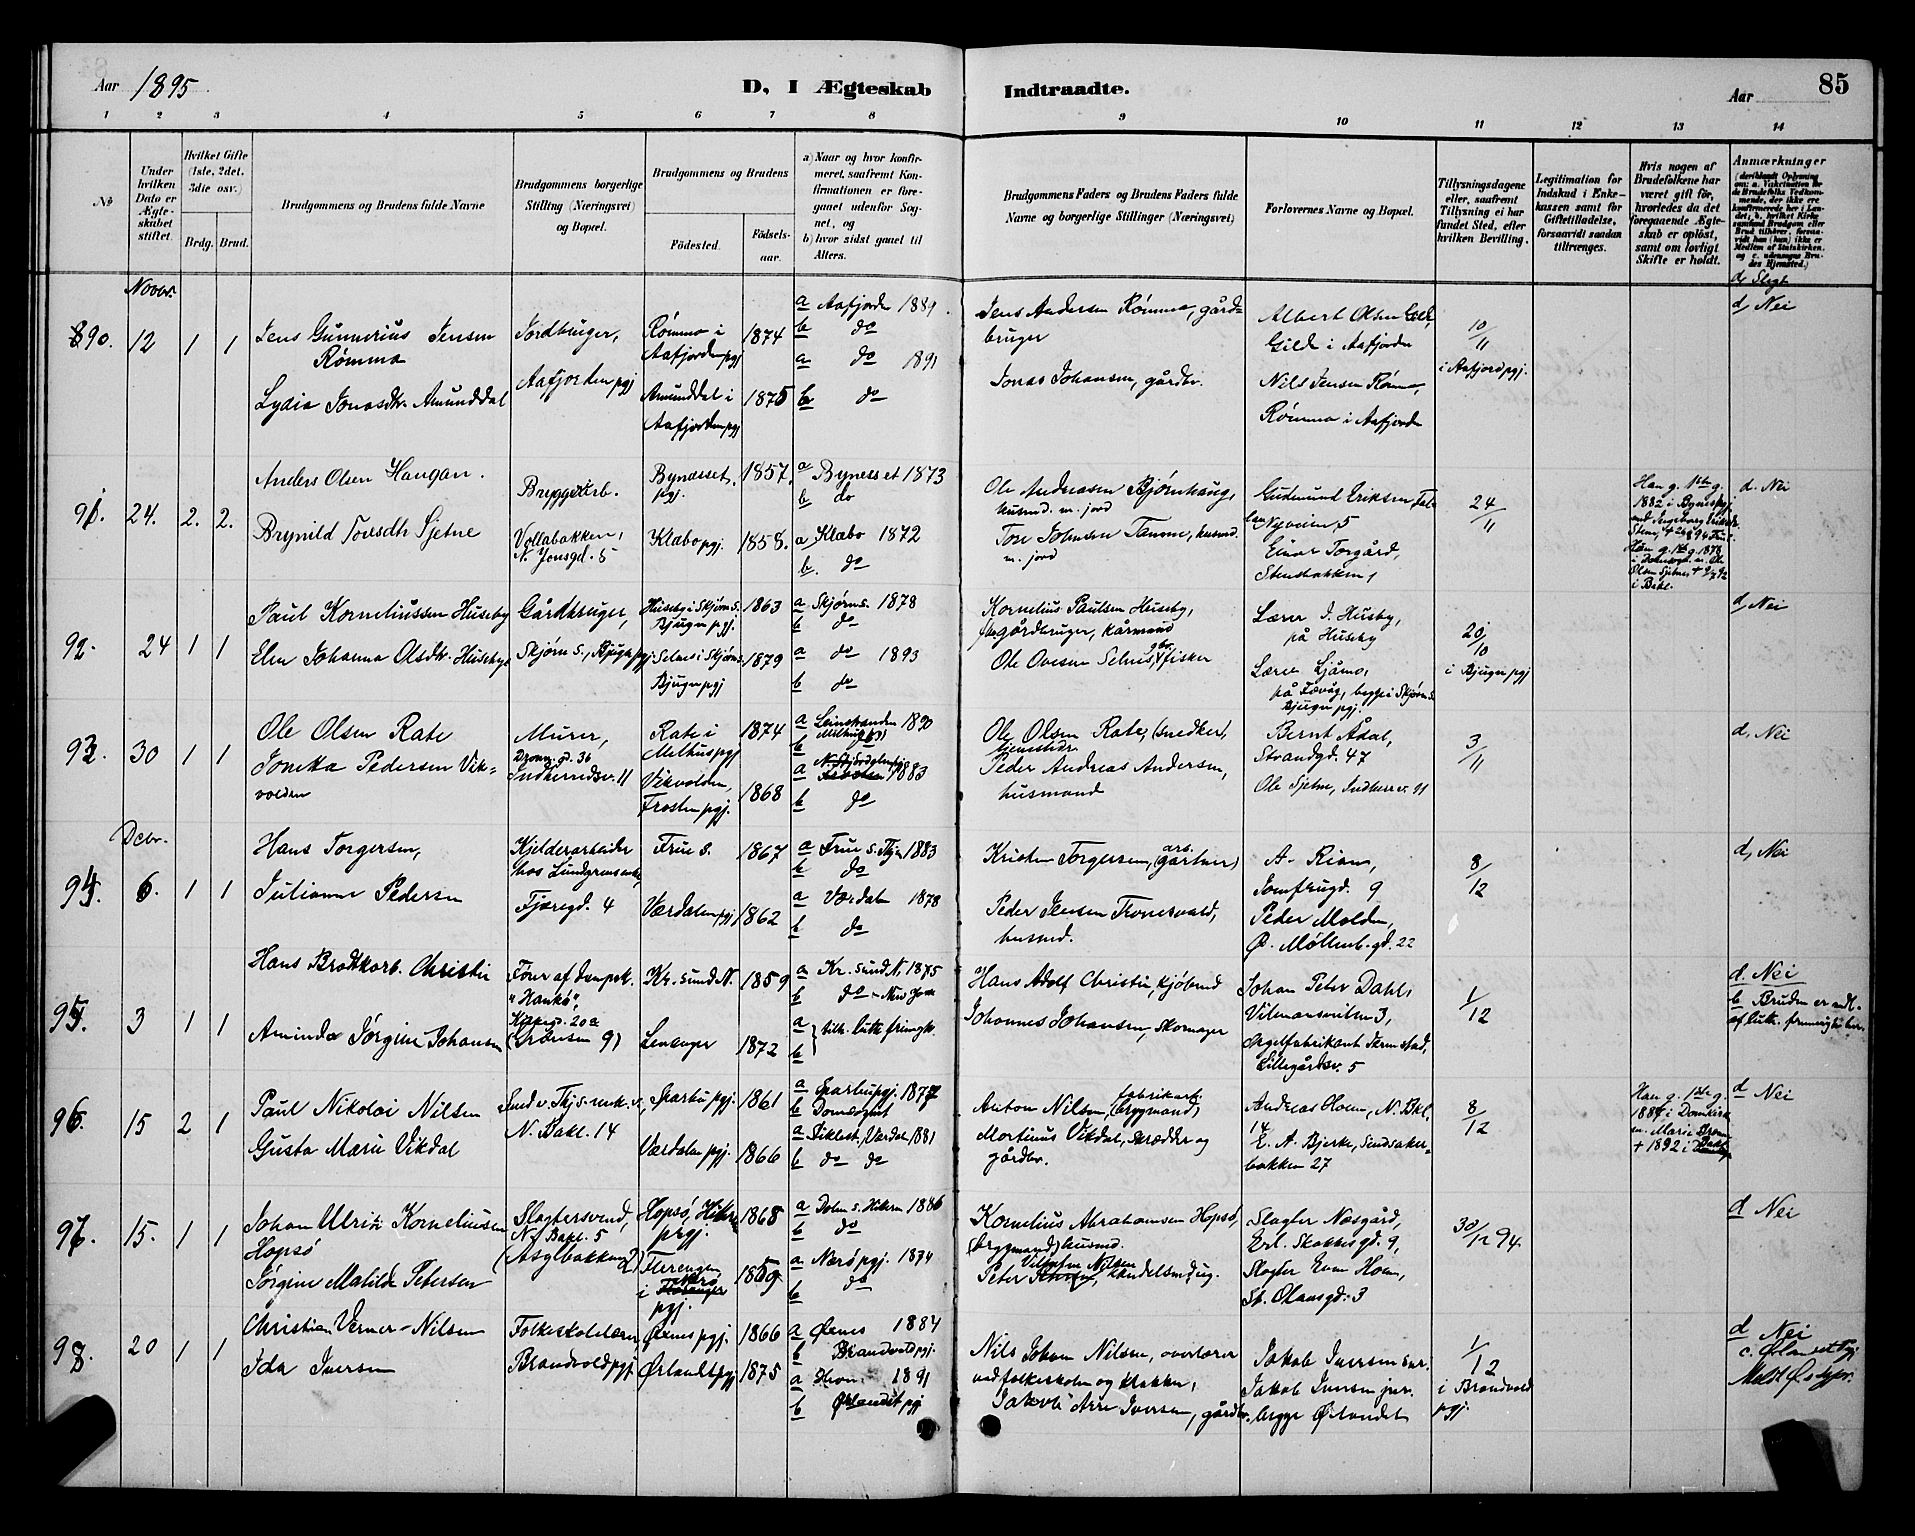 Aar 1895
D, I Ægteskab Indtraadte.
Aar
85
1 2 3 4 5 6 7 8 9 10 11 12 13 14
№
Under hvilken Dato er Ægteskabet stiftet.
Hvilket Gifte (1ste, 2det, 3die osv.)
Brdg. Brud.
Brudgommens og Brudens fulde Navne
Brudgommens borgerlige Stilling (Næringsvei) og Bopæl.
Brudgommens og Brudens
Fødested.
Fødselsaar.
a) Naar og hvor konfirmeret, saafremt Konfirmationen er foregaaet udenfor Sognet, og
b) hvor sidst gaaet til Alters.
Brudgommens Faders og Brudens Faders fulde Navne og borgerlige Stillinger (Næringsvei)
Forlovernes Navne og Bopæl.
Tillysningsdagene eller, saafremt Tillysning ei har fundet Sted, efter hvilken Bevilling.
Legitimation for Indskud i Enkekassen samt for Giftetilladelse, forsaavidt saadan tiltrænges.
Hvis nogen af Brudefolkene har været gift før, hvorledes da det foregaaende Ægteskab er opløst, samt om lovligt Skifte er holdt.
Anmærkninger
d, Slegt
Novbr.
90. 12 1 1
Jens Gunnerius Jensen Rømmo
Lydia Jonasdtr. Amunddal
Jordbruger,
Aafjorden pgj
Rømmo i Aafjorden pgj 1874
Amunddal i Aafjorden pgj 1875
a Aafjorden 1889
b do
a do 1891
b do
Jens Andersen Rømmo, gårdbruger
Jonas Johansen, gårdbr.
Albert Olsen Gild, Gild i Aafjorden
Nils Jensen Rømmo, Rømmo i Aafjorden
10/11 i Aafjord pgj.
d, Nei
91. 24. 2. 2.
Anders Olsen Haugan.
Brynild Toresdtr Sjetne
Bryggearb.
Vollabakken, N. Jonsgd. 5
Bynæsset pgj. 1857.
Klæbo pgj. 1858.
a Bynesset 1873
b do
a Klæbo 1872
b. do
Ole Andreasen Bjørnhaug, husmd. m. jord
Tore Johnsen Tanem, husmd. m. jord
Gudmund Eriksen
Nyveien, 5
Einar Torgård,
Stenbakken,
24/11
Han g. 1ste g. 1882 i
d. Nei
92. 24 1 1
Paul Korneliussen Huseby
Elen Johanna Olsdtr. Husebye
Gårdbruger,
Skjørn s., Bjugn pgj.
Huseby i Skjørn s. Bjugn pgj. 1863
Selnes i Skjørn s. Bjugn pgj 1879
a Skjørn s. 1878
b do
a do 1893
b do
Kornelius Paulsen Huseby, gårdbruger, kårmand
Ole Ovesen Selnes, fisker
Lærer J. Husby, på Huseby
Lærer Ljåmo, på Fævåg, begge i Skjørn s. Bjugn pgj.
20/10 i Bjugn pgj
d, Nei
93. 30 1 1
Ole Olsen Rate
Jonetta Pedersen Vikvolden
Murer,
Dronn. gd. 36
Indherredsv. 11
Rate i Melhus pgj 1874
Vikvolden, Frosten pgj. 1868
a Leinstranden 1890
b Melhus pgj
a 1883
b do
Ole Olsen Rate, (snedker)
Peder Andreas Andersen, husmand
Bernt Ådal, Strandgd. 47
Ole Sjetne, Indherr v. 11
3/11
d, Nei
Decbr.
94. 6. 1 1
Hans Torgersen,
Julianne Pedersen
Kjelderarbeider hos Lundgrens enke,
Fjæregd. 4
Frue s. 1867
Værdalen pgj 1862
a Frue s. Thjem 1883
b do
a Værdalen 1878
b do
Kristen Torgersen, (gartner)
Peder Jensen Tronesvald, husmd.
A. Rian, Jomfrugd. 9
Peder Molden, Ø. Møllenb. gd. 22
8/12
d, Nei
95. 3 1 1
Hans Brodtkorb. Christie
Aminda Jørgine Johansen
Fører af dampsk. "Hankø",
Kr. sund N. 1859
Levanger 1872
a Kr. sund N. 1875
b do - New York
a } tilh. luth. frimgh.
b
Hans Adolf Christie, kjøbmd
Johannes Johansen, skomager
Johan Peter Dahl, Vilmansveiten 3,
Orgelfabrikant
Lillegårdsv. 5
1/12
d. Nei
b Bruden er medl. af luth. frimenighed
96. 15 2 1
Paul Nikolai Nilsen
Gusta Marie Vikdal
N. Bakl. 14
Sparbu pgj. 1861
Værdalen pgj. 1866
a Sparbu pgj. 1877
b Domsognet
a Stiklest. Værdal 1881
b do do
Anton Nilsen, bryggmand,
Mortinus Vikdal, skrædder og gårdbr.
Andreas Hoem, N. Bkl. 14
E. A. Bjerke, Sandsakerbakken 27
8/12
Han g. 1ste g. 1887 i Domkirk. m. Marie
+ 1892 i
d Nei
97. 15. 1 1
Johan Ulrik Korneliusen Hopsø
Jørgine Matilde Petersen
Slagtersvend,
N. Bakl. 5
(Asylbakken 2)
Hopsø, Hitteren prgj. 1868
Flerengen i Nærø pgj. 1859
a Dolm s. Hitern 1886
b do
a Nærø pgj. 1874
b do
Kornelius Abrahamsen Hopsø, (bryggmand) husmd.
Peter Vilhelm Nilsen, handelsmd.
Slagter Næsgård, Erl. Skakkes gd. 9,
Slagter Even Hoem, St. Olansgd. 3
30/12 94
d Nei
98. 20 1 1
Christian Verner-Nilsen
Ida Iversen
Folkeskolelærer
Brandvold pgj,
Øxnes pgj. 1866
Ørlandet pgj 1875
a Øxnes 1884
b Brandvold pgj.
a 1891
b Ørlandet pgj
Nils Johan Nilsen, overlærer ved folkeskolen og klokker,
Jakob Arn Iversen, gårdbr.
Jakob Iversen sen.
Jakob Iversen jun.
begge Ørlandet
1/12 i Brandvold pgj.
d Nei
c. Ørlandet Pgj